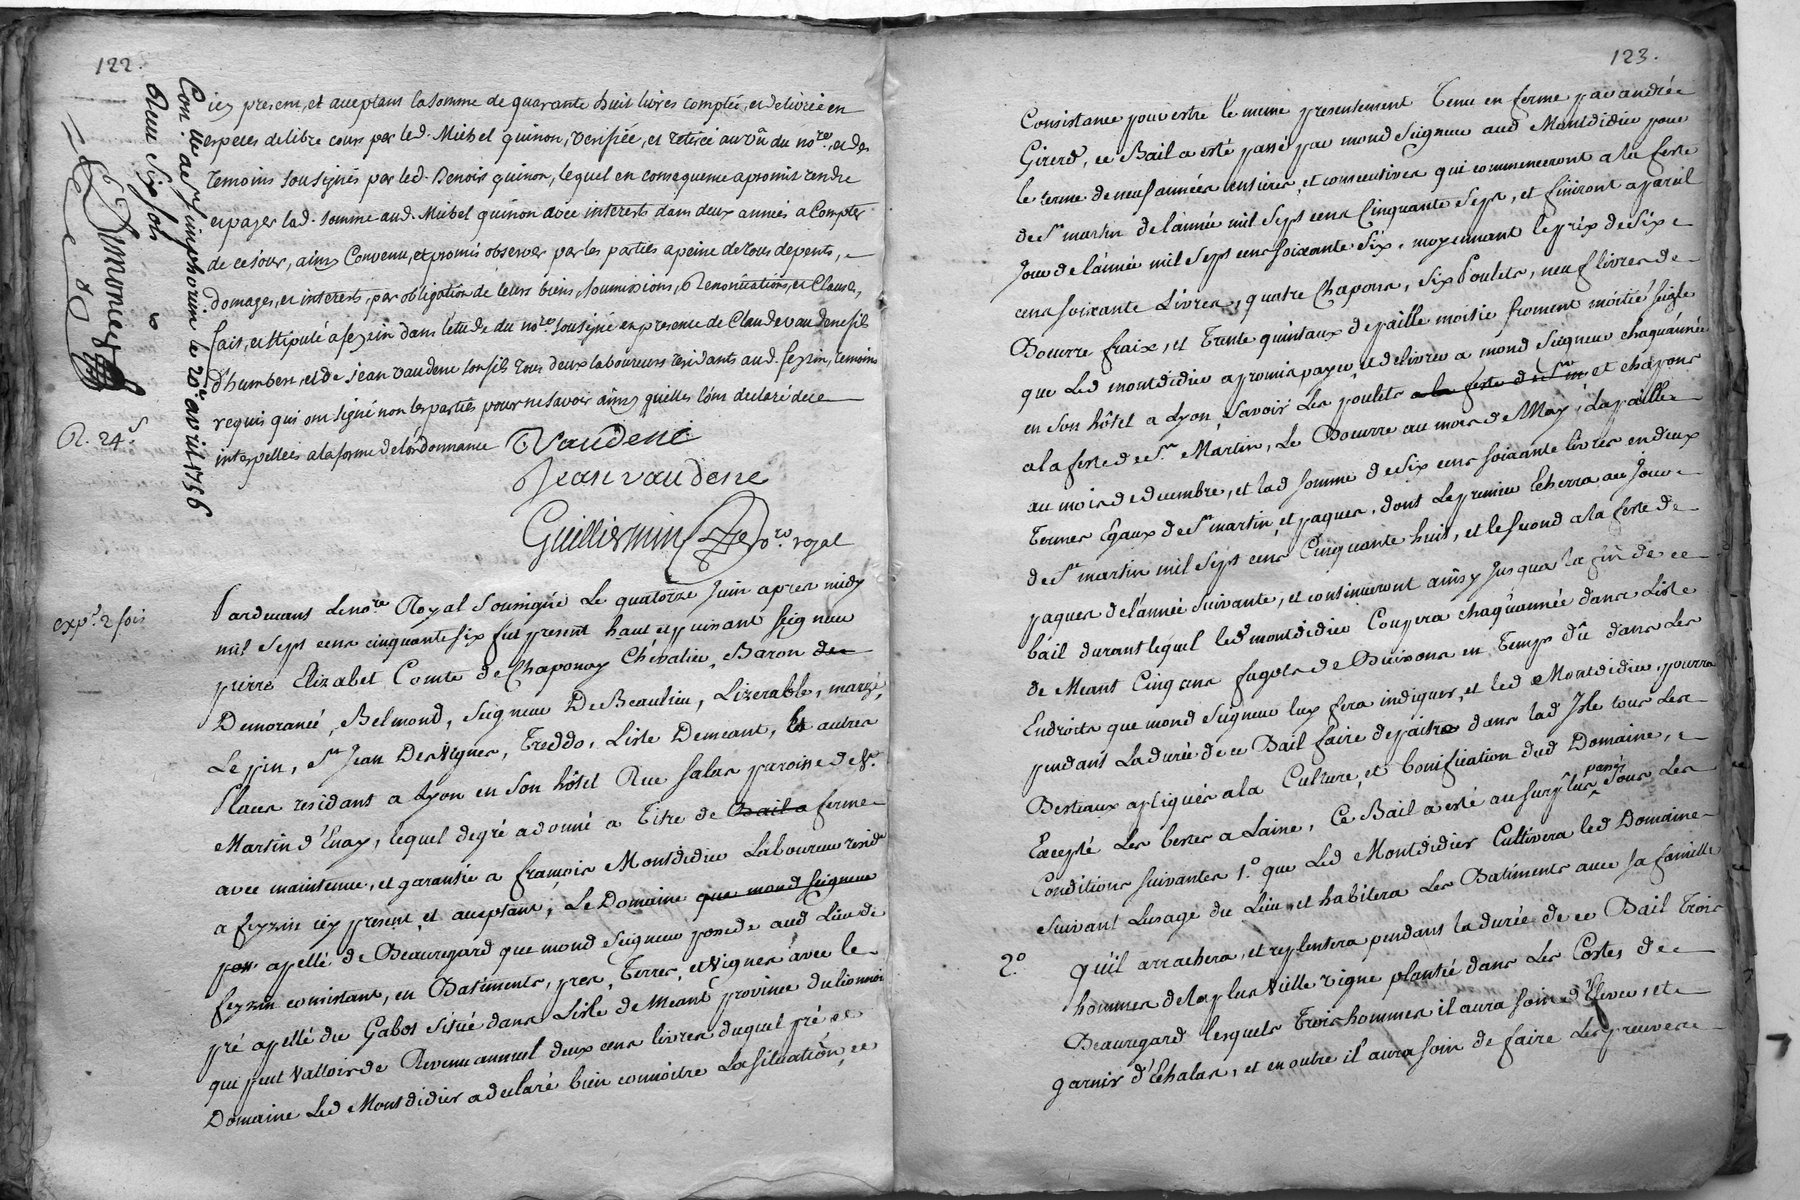 122.
Con. lle a st simphorien le 20e avril 1756
Reçu six sols
icy present, et acceptant la somme de quarante huit livres comptée, et delivrée en
especes de libre cours par led. Michel quinon, verifiée, et retirée au vû du nore, et des
temoins sousignés par led. Benoit quinon, lequel en consequence a promit rendre
et payer lad. somme aud. Michel quinon avec interests dans deux années a Compter
de ce jour, ainsy Convenu, et promis observer par les parties a peine de tous depents,
domages, et interests, par obligation de leurs biens, soumissions, Renontiations, et Clauses,
fait, et stipulé a feyzin dans l'etude du nore sousigné en presence de Claude vaudene fils
d'humbert, et de jean vaudene son fils tous deux laboureurs residants aud. feyzin, temoins
requis qui ont signé non les parties pour ne savoir ainsy quelles l'ont declaré de ce
R. 24s
interpellées a la forme de l'ordonnance Vaudene
Jean vaudene
Guilliermin nore royal
exp. 2 fois
Pardevant Le nore Royal Sousigné Le quatorze Juin apres midy
mil sept cent cinquante six fut present haut et puissant seigneur
pierre Elizabet Comte de Chaponay Chevalier, Baron de
Demorancé, Belmond, Seigneur De Beaulieu, Lizerable, marzé,
Le pin, st Jean Des Vignes, Treddo, Lisle Demeant, & autres
Places residant a Lyon en son hôtel Rue Sala paroisse de st
Martin d'Enay, lequel de gré a donné a Titre de Bail a ferme
avec maintenue, et garantie a françois Montdidier Laboureur reside
a feyzin icy present et acceptant, Le Domaine que mond seigneur
pos apellé de Beauregard que mond seigneur possede aud Lieu de
feyzin consistant, en Batiments, pres, Terres, et vignes avec le
pré apellé du Gabot situé dans Lisle de Meant province du lionnois
qui peut valloir de Revenu annuel deux cens livres duquel pré et
Domaine Led Montdidier a declaré bien connoitre La situation, et
123.
Consistance pour estre le meme presentement Tenu en ferme par andrée
Girerd, ce Bail a esté passé par mond Seigneur aud Montdidier pour
le terme de neuf années entieres, et consecutives qui commenceront a la feste
de st martin de l'année mil sept cens Cinquante sept, et finiront a pareil
Jour de l'année mil sept cens soixante six, moyennant le prix de six
cens soixante Livres, quatre Chapons, six Poulets, neuf livres de
Beurre fraix, et Trente quintaux de paille moitié froment moitié seigle
que Led montdidier a promis payer et delivrer a mond Seigneur chaq'année
en son hôtel a Lyon, savoir Les poulets a la feste de st m et chapons
a la feste de st Martin, Le Beurre au mois de May, la paille
au mois de decembre, et lad somme de six cens soixante livres en deux
Termes Egaux de st martin et paques, dont Le premier Eherra au Jour
de st martin mil sept cens Cinquante huit, et le second a la feste de
paques de l'année suivante, et continueront ainsy jusqua la fin de ce
bail durant lequel led montdidier Coupera chaq'année dans Lisle
de Meant Cinq cens fagots de Buissons en Temps dû dans Les
Endroits que mond Seigneur luy fera indiquer, et led Montdidier pourra
pendant La durée de ce Bail faire depaitre dans lad Isle tous Les
Bestiaux apliqués a la Culture, et bonification dud Domaine,
Excepté Les bestes a Laine, Ce Bail a esté au surplus passé sous Les
Conditions suivantes 1.° que Led Montdidier Cultivera led Domaine
suivant Lusage du Lieu et habitera Les Batiments avec sa famille
2.° qu'il arrachera, et replentera pendant la durée de ce Bail Trois
hommes de la plus vielle vigne plantée dans Les Costes de
Beauregard lesquels Trois hommes il aura soin d'Elever, et
garnir d'Echalas, et en outre il aura soin de faire Les preuves